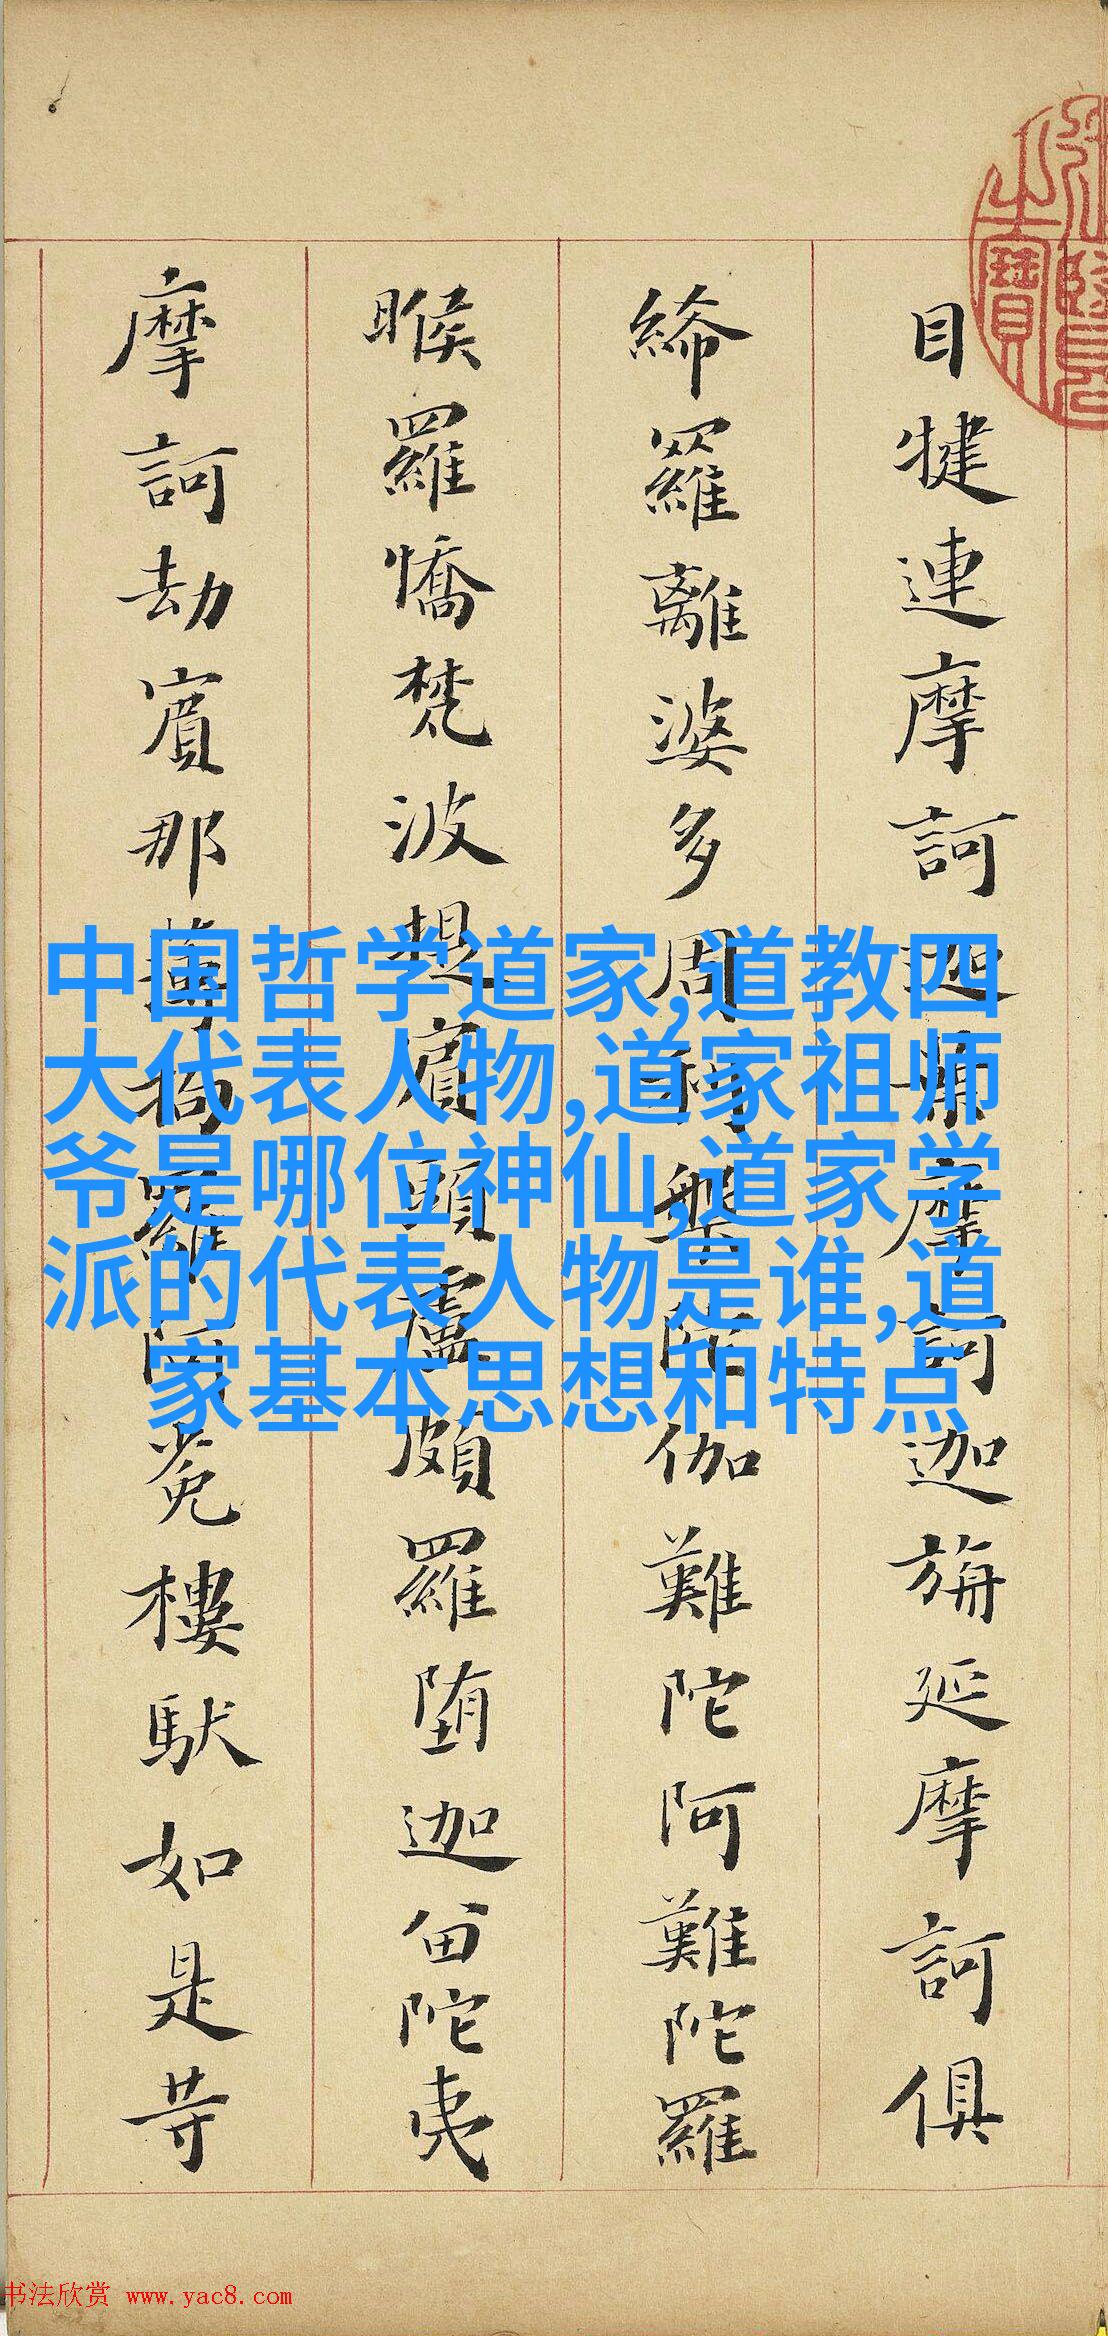 目犍連摩訶迦葉摩訶迦旃延摩訶俱
絺羅離婆多周利槃陀伽難陀阿難陀羅
睺羅憍梵波提賓頭盧頗羅堕迦留陀夷
摩訶劫賓那薄拘羅阿㝹樓馱如是等
中国哲学道家,道教四
大代表人物,道家祖师
爷是哪位神仙,道家学
派的代表人物是谁,道
家基本思想和特点
书法欣赏 www.yac8.com